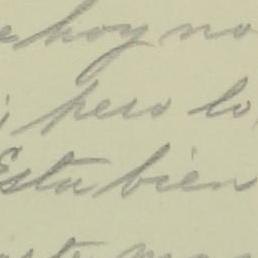 e hoy no
; pero lo
Esta bien